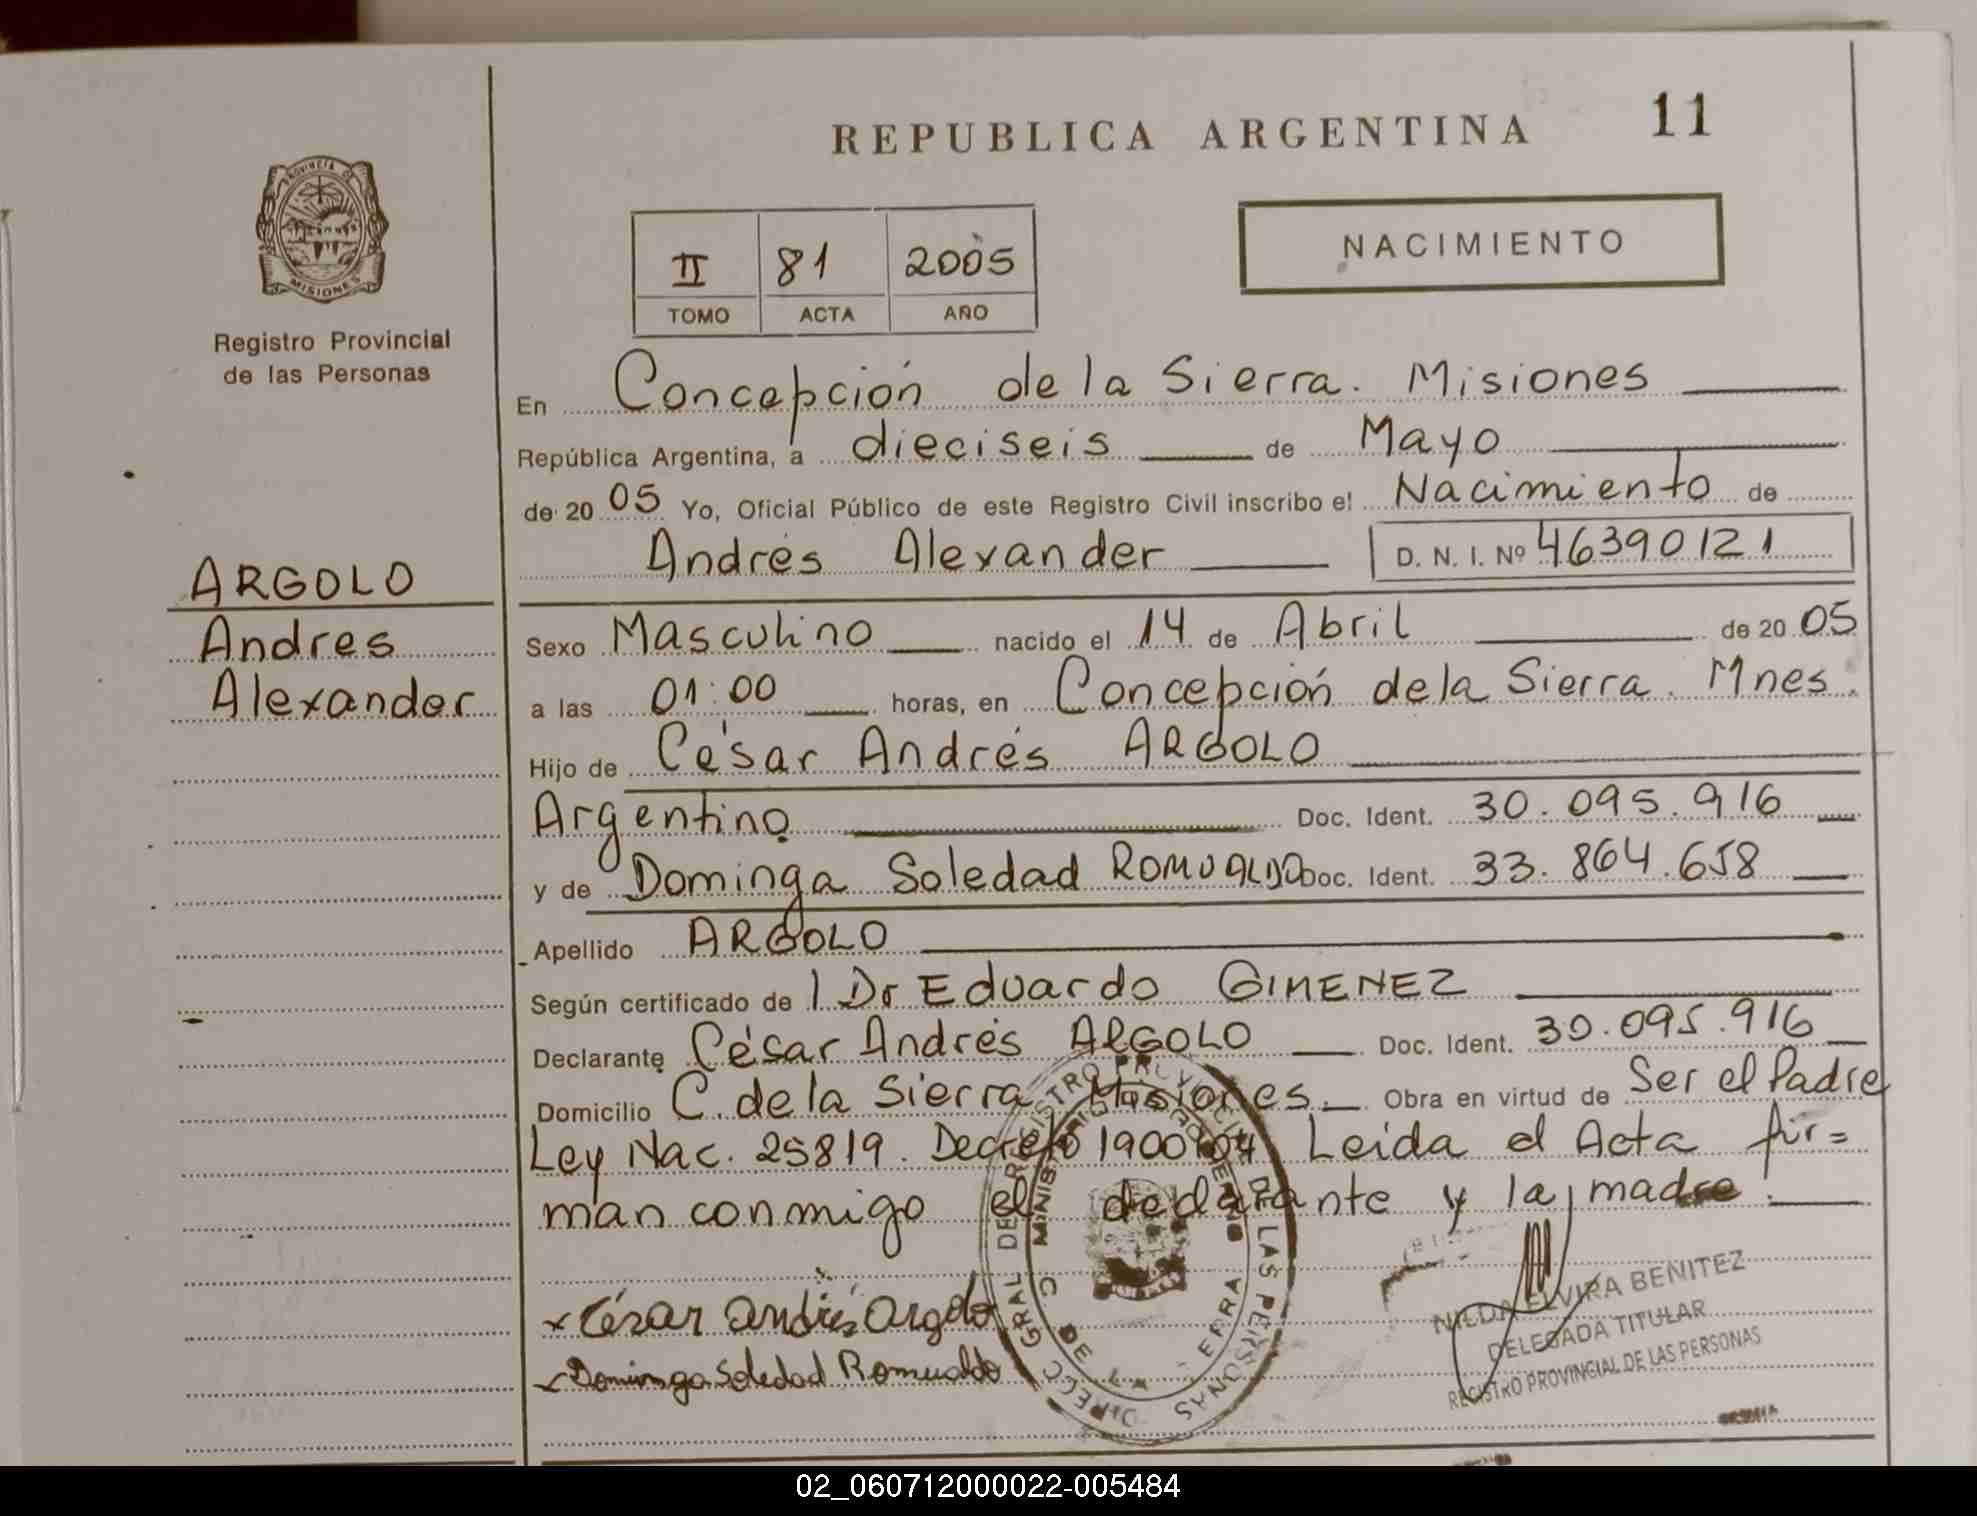 REPUBLICA ARGENTINA 11
PROVINCIA DE
MISIONES
Registro Provincial
de las Personas
II 81 2005
TOMO ACTA AÑO
NACIMIENTO
En Concepción de la Sierra. Misiones
República Argentina, a dieciseis de Mayo
de 20 05 Yo, Oficial Público de este Registro Civil inscribo el Nacimiento de
Andrés Alexander D. N. I. Nº 46390121
ARGOLO
Andres
Alexander
Sexo Masculino nacido el 14 de Abril de 20 05
a las 01:00 horas, en Concepción de la Sierra. Mnes.
Hijo de César Andrés ARGOLO
Argentino Doc. Ident. 30.095.916
y de Dominga Soledad ROMUALDO Doc. Ident. 33.864.658
Apellido ARGOLO
Según certificado de l Dr Eduardo GIMENEZ
Declarante César Andrés ARGOLO Doc. Ident. 30.095.916
Domicilio C. de la Sierra Misiones. Obra en virtud de Ser el Padre
Ley Nac. 25819. Decreto 1900/04 Leida el Acta fir=
man conmigo el declarante y la madre.
x César Andrés Argolo
Dominga Soledad Romualdo
DIRECC GRAL DEL REGISTRO PROVINCIAL DE LAS PERSONAS
C DE LA SIERRA
NILDA ELVIRA BENITEZ
DELEGADA TITULAR
REGISTRO PROVINCIAL DE LAS PERSONAS
02_060712000022-005484